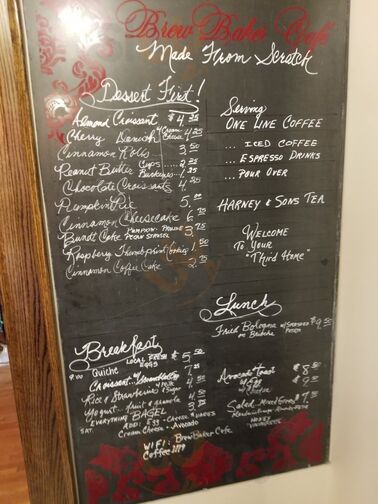 Brew Baker Café
Made From Scratch
Dessert First!
Almond Croissant $4.25
Cherry Danish w/ Cream Cheese 4.25
Cinnamon Rolls 3.50
Peanut Butter Cups 2.25
Buckeyes 1.25
Chocolate Croissant 4.
Pumpkin Pie 5.00
Cinnamon Cheesecake 6.
Bundt Cake 3.
Raspberry Thumbprint Cookies 1.50
Cinnamon Coffee Cake 2.75
Serving
One Line Coffee
... Iced Coffee
... Espresso Drinks
... Pour Over
Harney & Sons Tea
Welcome
To Your
"Third Home"
Lunch
Fried Bologna
on Brioche
$9.50
Breakfast
Quiche
Local Fresh Eggs
$5.50
Croissant
Rice & Strawberries
w/ Milk & Sugar
Yogurt... fruit & granola
Everything Bagel
Sat.
Add: Egg - Cheese
Cream Cheese - Avocado
Avocado Toast $8.50
w/ Egg
Salad - Mixed Greens
WIFI: BrewBaker Cafe